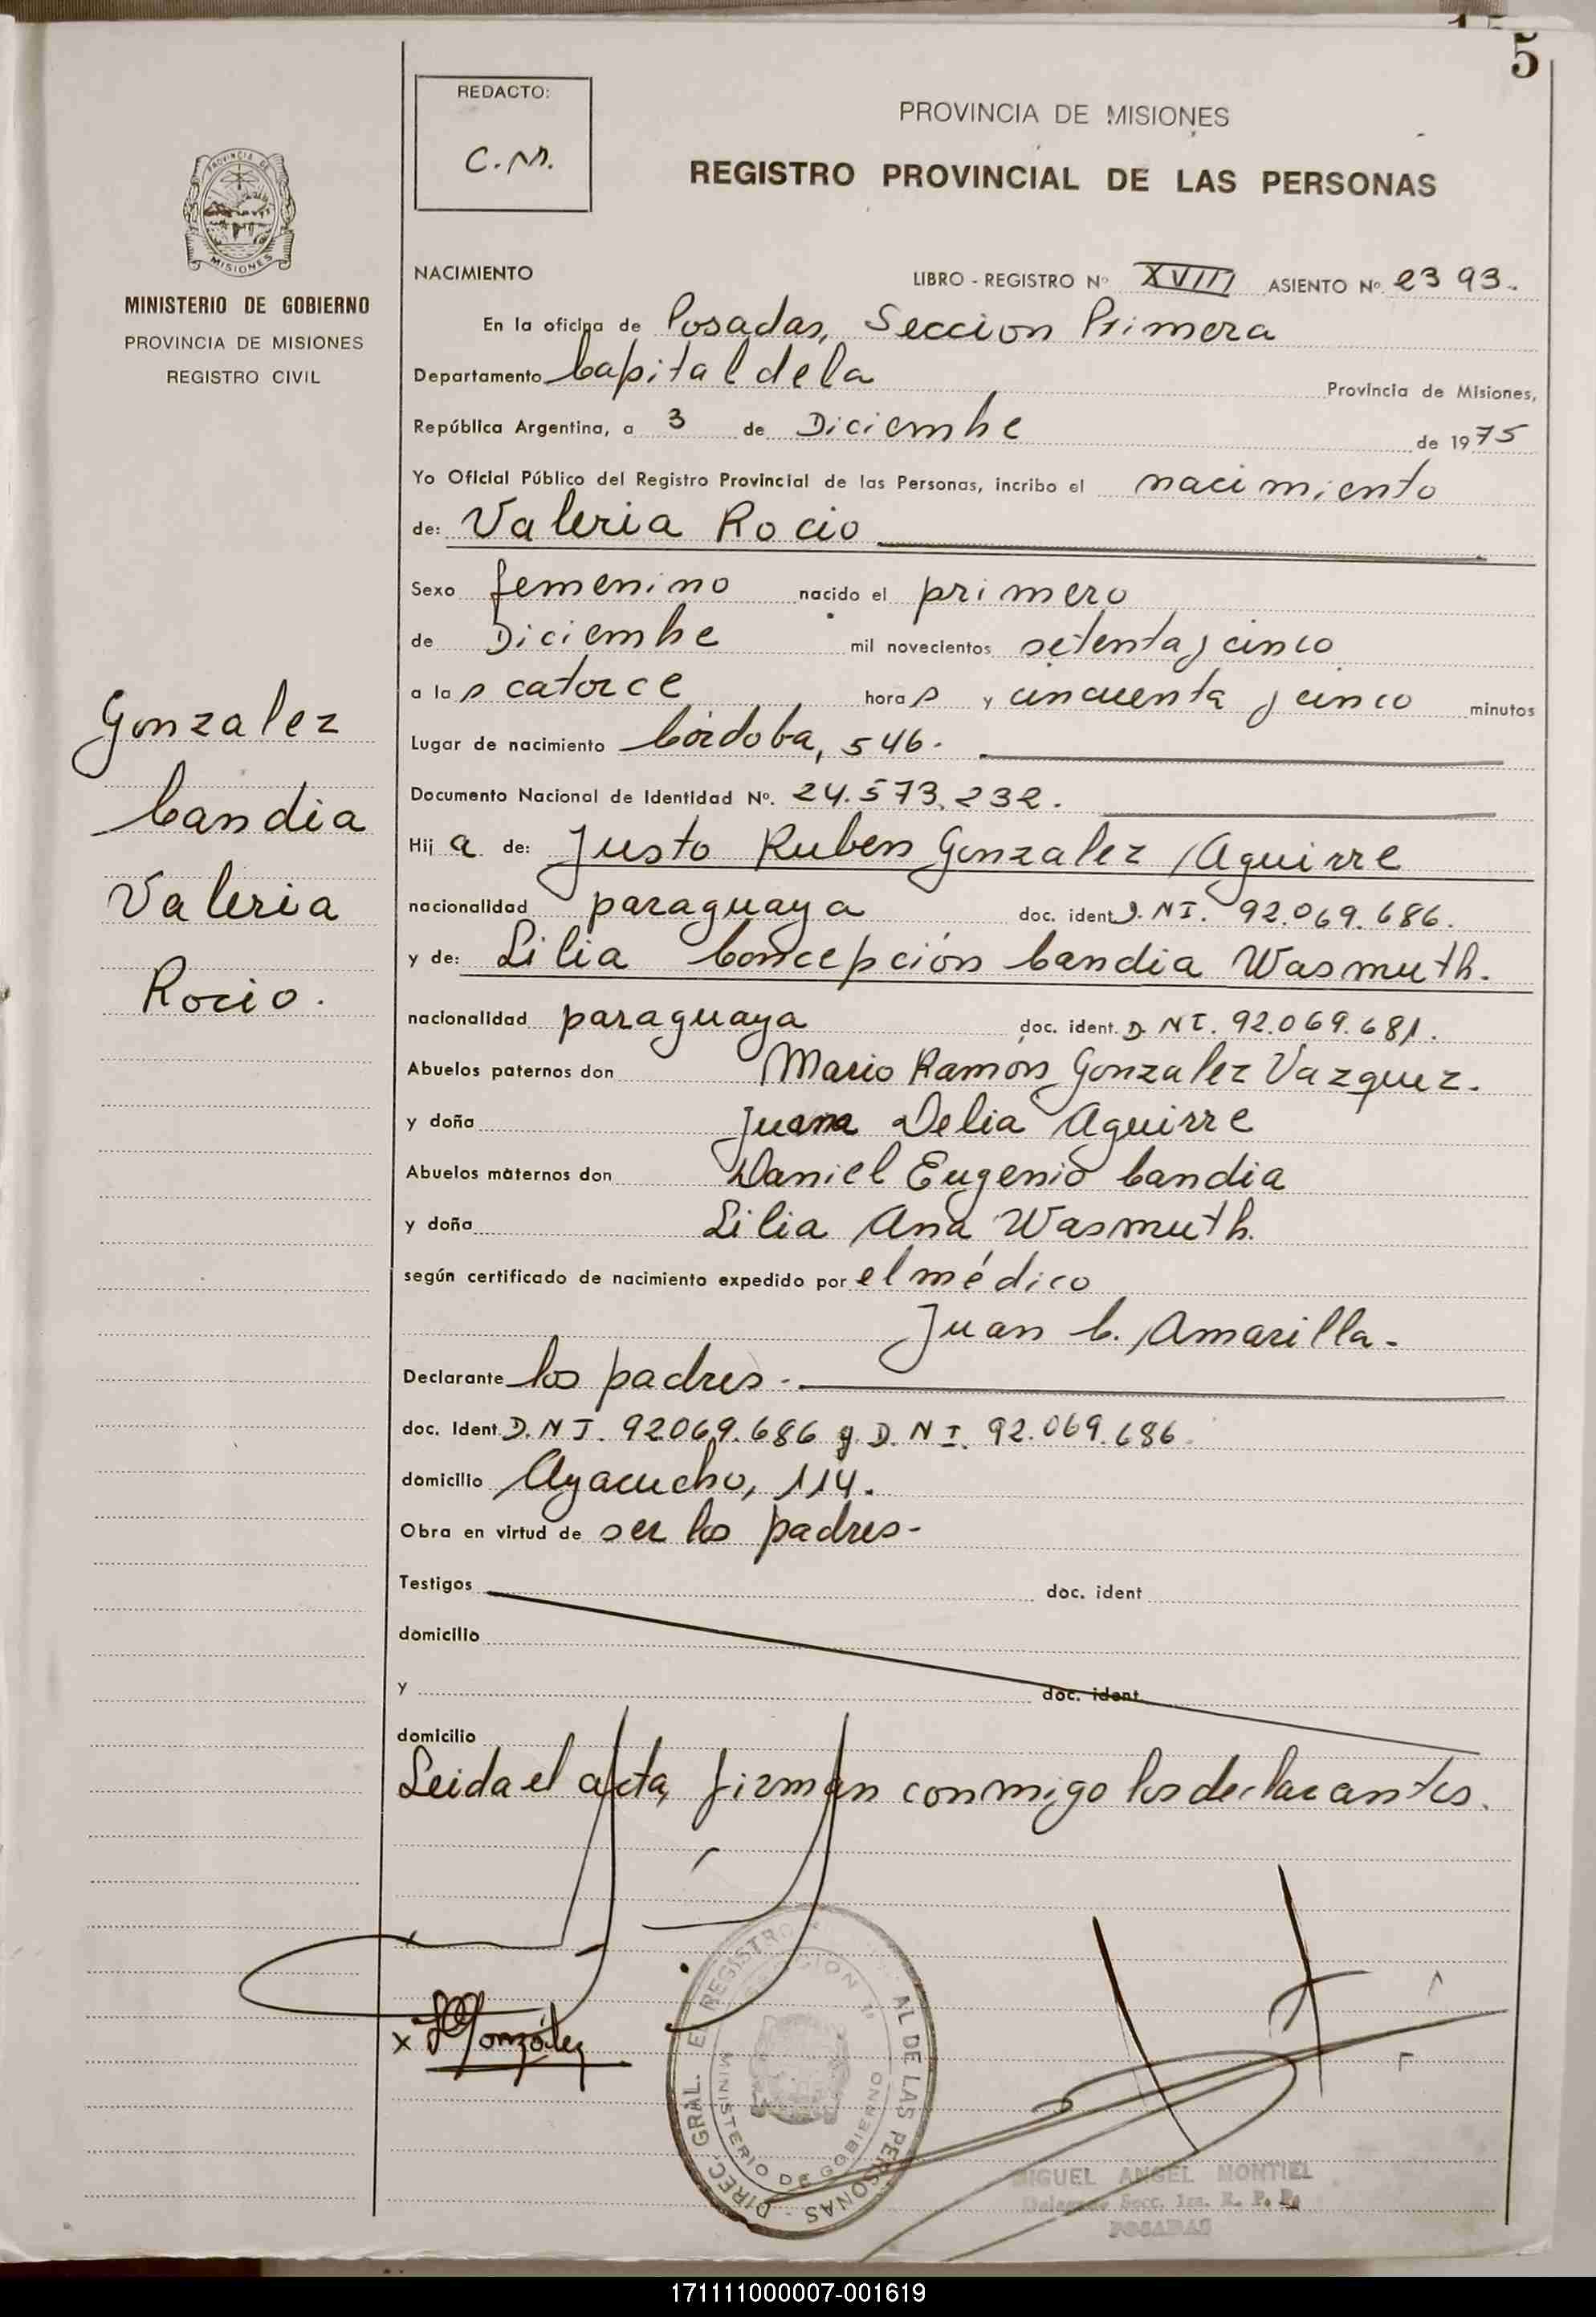 5
REDACTO:
C.M.
PROVINCIA DE MISIONES
REGISTRO PROVINCIAL DE LAS PERSONAS
PROVINCIA DE
MISIONES
MINISTERIO DE GOBIERNO
PROVINCIA DE MISIONES
REGISTRO CIVIL
Gonzalez
Candia
Valeria
Rocio.
NACIMIENTO LIBRO - REGISTRO Nº XVIII ASIENTO Nº 2393.
En la oficina de Posadas, Seccion Primera
Departamento Capital de la Provincia de Misiones,
República Argentina, a 3 de Diciembe de 1975
Yo Oficial Público del Registro Provincial de las Personas, incribo el nacimiento
de: Valeria Rocio
Sexo femenino nacido el primero
de Diciembe mil novecientos setenta y cinco
a las catorce horas y cincuenta y cinco minutos
Lugar de nacimiento Córdoba, 546.
Documento Nacional de Identidad Nº. 24.573.232.
Hija de: Justo Ruben Gonzalez Aguirre
nacionalidad paraguaya doc. ident D.N.I. 92.069.686.
y de: Lilia Concepción Candia Wasmuth.
nacionalidad paraguaya doc. ident. D.N.I. 92.069.681.
Abuelos paternos don Mario Ramón Gonzalez Vazquez.
y doña Juana Delia Aguirre
Abuelos maternos don Daniel Eugenio Candia
y doña Lilia Ana Wasmuth.
según certificado de nacimiento expedido por el médico
Juan C. Amarilla.
Declarante los padres.
doc. Ident. D.N.I. 92069.686 y D.N.I. 92.069.686.
domicilio Ayacucho, 114.
Obra en virtud de ser los padres-
Testigos doc. ident
domicilio
y doc. ident
domicilio
Leida el acta, firman conmigo los declarantes.
x González
DIREC. GRAL. REGISTRO AL DE LAS PERSONAS
MINISTERIO DE GOBIERNO
MIGUEL ANGEL MONTIEL
Secc. 1ra. R. P. P.
POSADAS
171111000007-001619